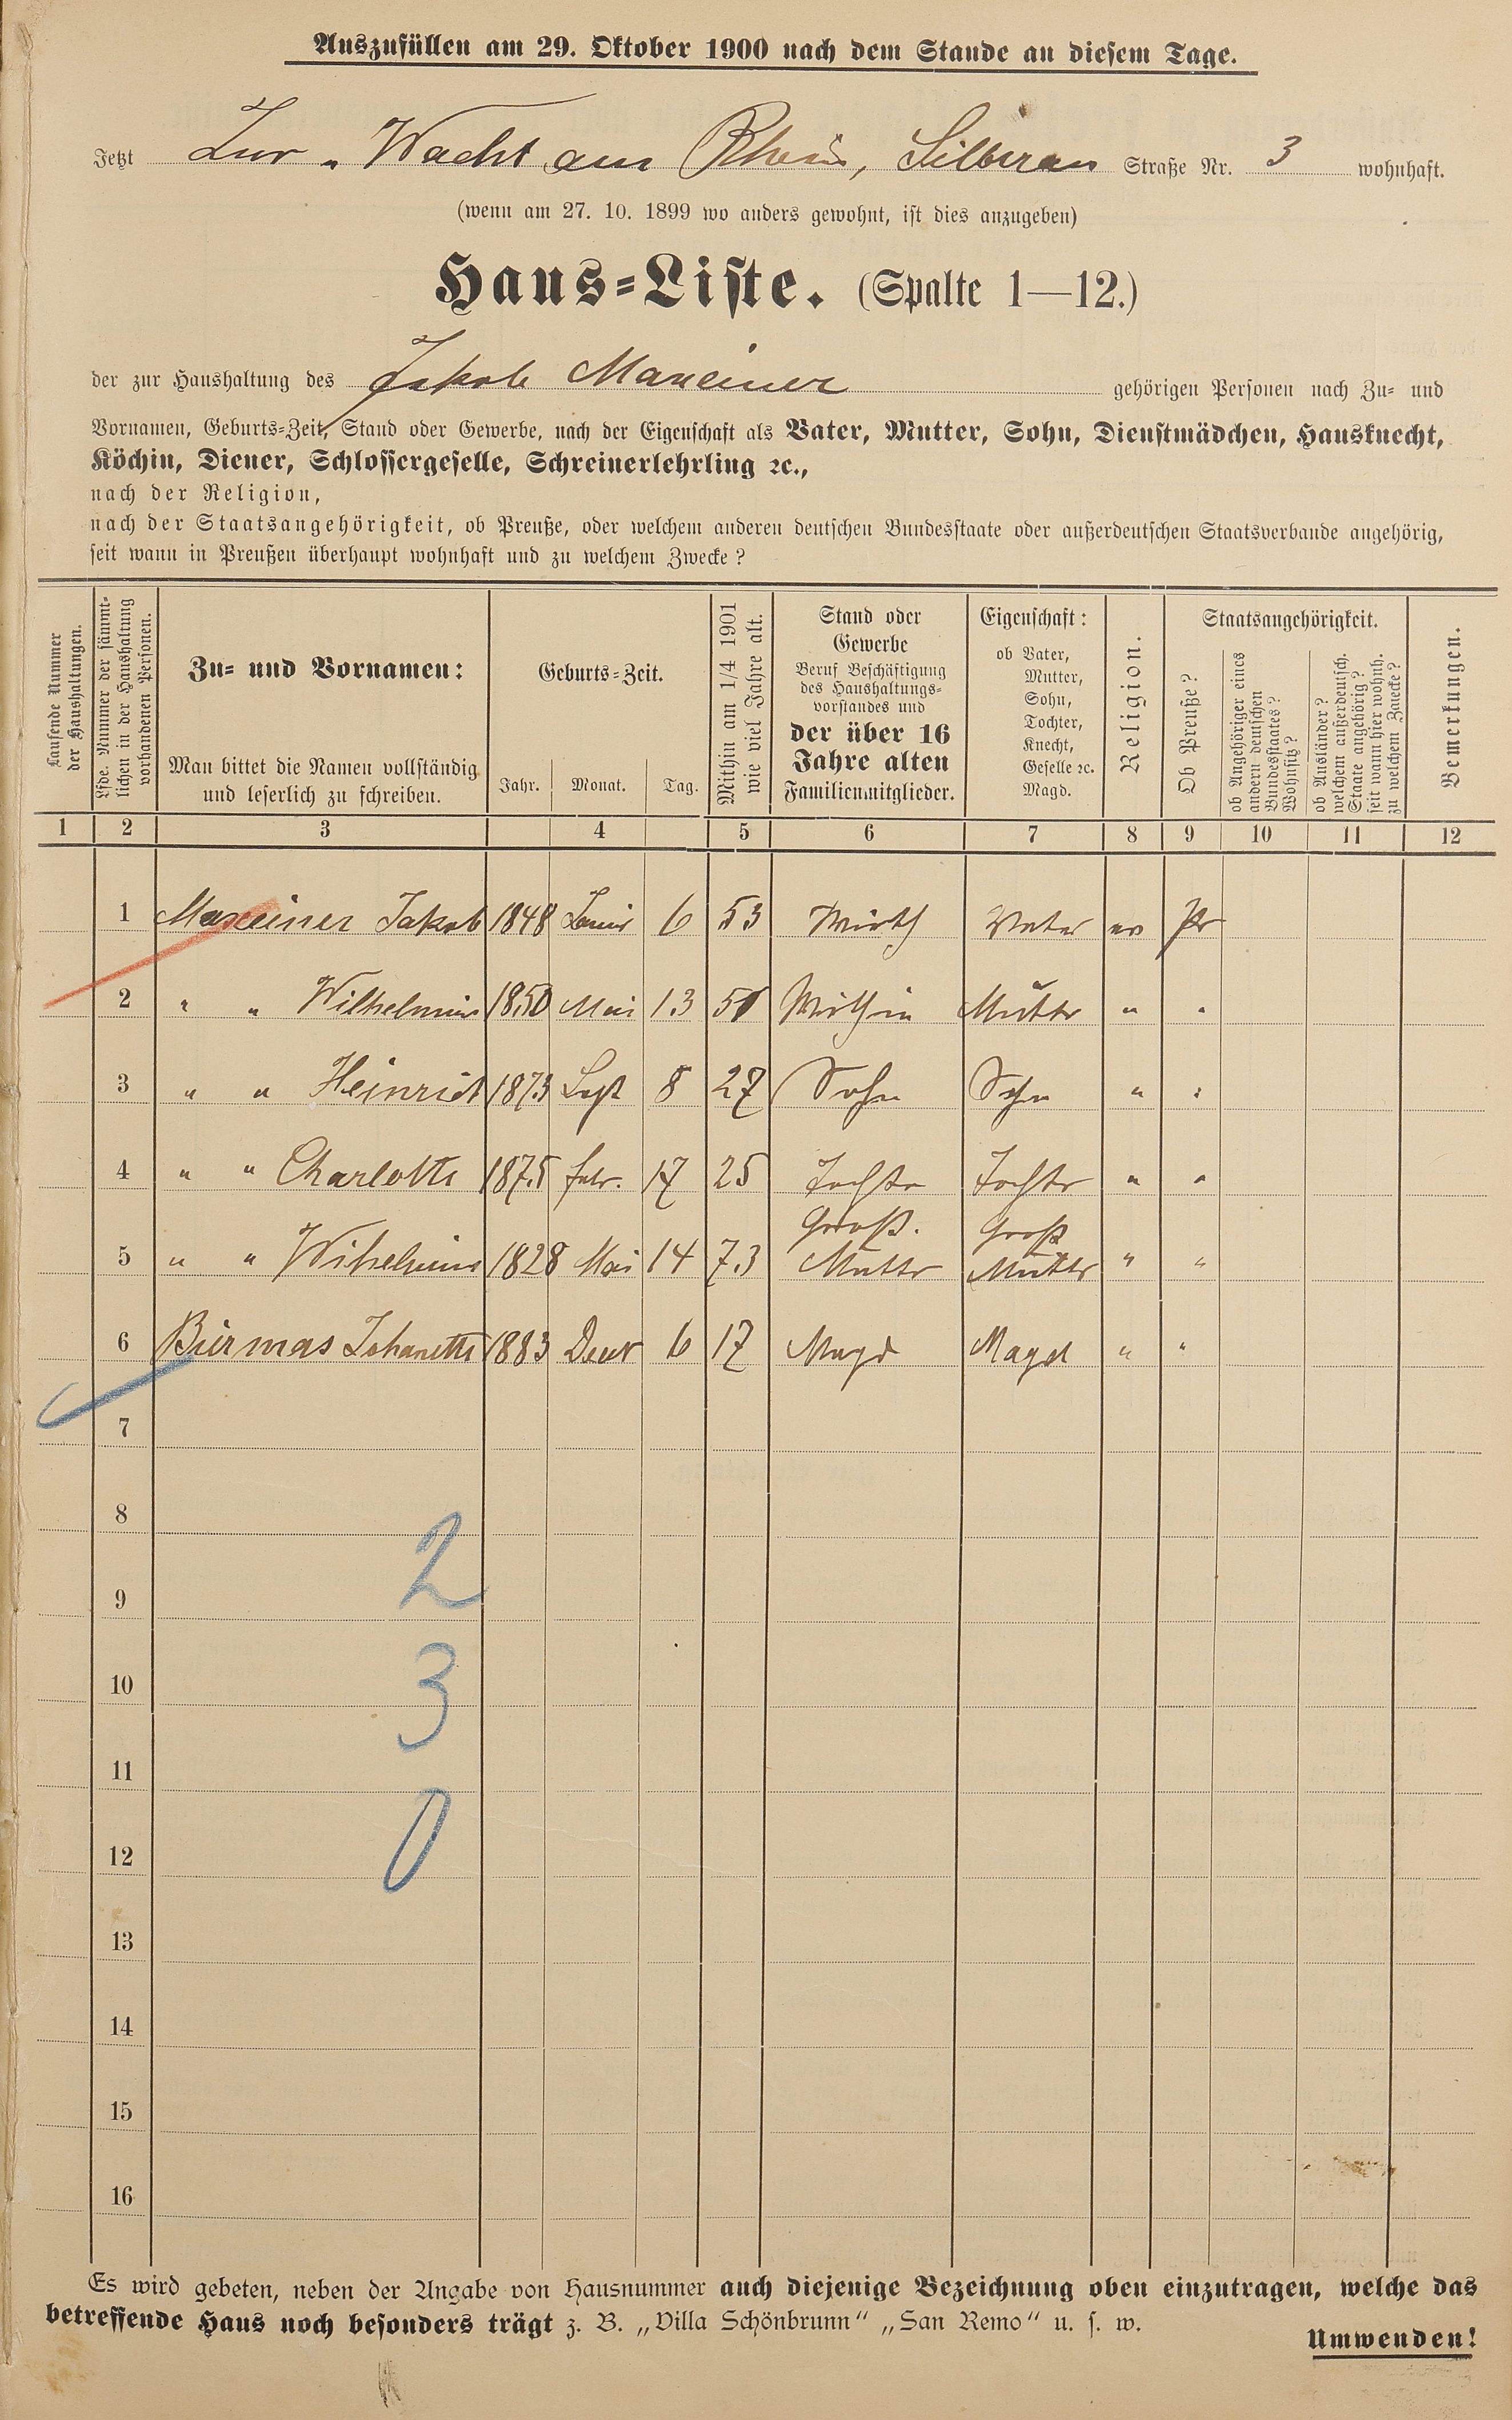 Auszufüllen am 29. Oktober 1900 nach dem Stande an diesem Tage.
Jetzt Zur „Wacht am Rhein, Silberau Straße Nr. 3 wohnhaft.
(wenn am 27. 10. 1899 wo anders gewohnt, ist dies anzugeben)
Haus-Liste. (Spalte 1—12.)
der zur Haushaltung des Jakob Maxeiner gehörigen Personen nach Zu- und
Vornamen, Geburts-Zeit, Stand oder Gewerbe, nach der Eigenschaft als Vater, Mutter, Sohn, Dienstmädchen, Hausknecht,
Köchin, Diener, Schlossergeselle, Schreinerlehrling ꝛc.,
nach der Religion,
nach der Staatsangehörigkeit, ob Preuße, oder welchem anderen deutschen Bundesstaate oder außerdeutschen Staatsverbande angehörig,
seit wann in Preußen überhaupt wohnhaft und zu welchem Zwecke?
Laufende Nummer
der Haushaltungen.
Lfde. Nummer der sämmt-
lichen in der Haushaltung
vorhandenen Personen.
Zu- und Vornamen:
Man bittet die Namen vollständig
und leserlich zu schreiben.
Geburts-Zeit.
Jahr. Monat. Tag.
Mithin am 1/4 1901
wie viel Jahre alt.
Stand oder
Gewerbe
Beruf Beschäftigung
des Haushaltungs-
vorstandes und
der über 16
Jahre alten
Familienmitglieder.
Eigenschaft:
ob Vater,
Mutter,
Sohn,
Tochter,
Knecht,
Geselle ꝛc.
Magd.
Religion.
Staatsangehörigkeit.
Ob Preuße?
ob Angehöriger eines
andern deutschen
Bundesstaates?
Wohnsitz?
ob Ausländer?
welchem außerdeutsch.
Staate angehörig?
seit wann hier wohnh.
zu welchem Zwecke?
Bemerkungen.
1 2 3 4 5 6 7 8 9 10 11 12
1 Maxeiner Jakob 1848 6 53 Wirth Vater ev Pr
2 " " Wilhelmine 1850 Mai 13 50 Wirthin Mutter " "
3 " " Heinrich 1873 Sept 8 27 Sohn Sohn " "
4 " " Charlotte 1875 febr. 17 25 Tochter Tochter " "
Groß. Groß
5 " " Wilhelmine 1828 Mai 14 73 Mutter Mutter " "
6 Johanette 1883 6 17 Magd Magd " "
7
8
2
9
10
3
11
12
0
13
14
15
16
Es wird gebeten, neben der Angabe von Hausnummer auch diejenige Bezeichnung oben einzutragen, welche das
betreffende Haus noch besonders trägt z. B. „Villa Schönbrunn“ „San Remo“ u. s. w.
Umwenden!